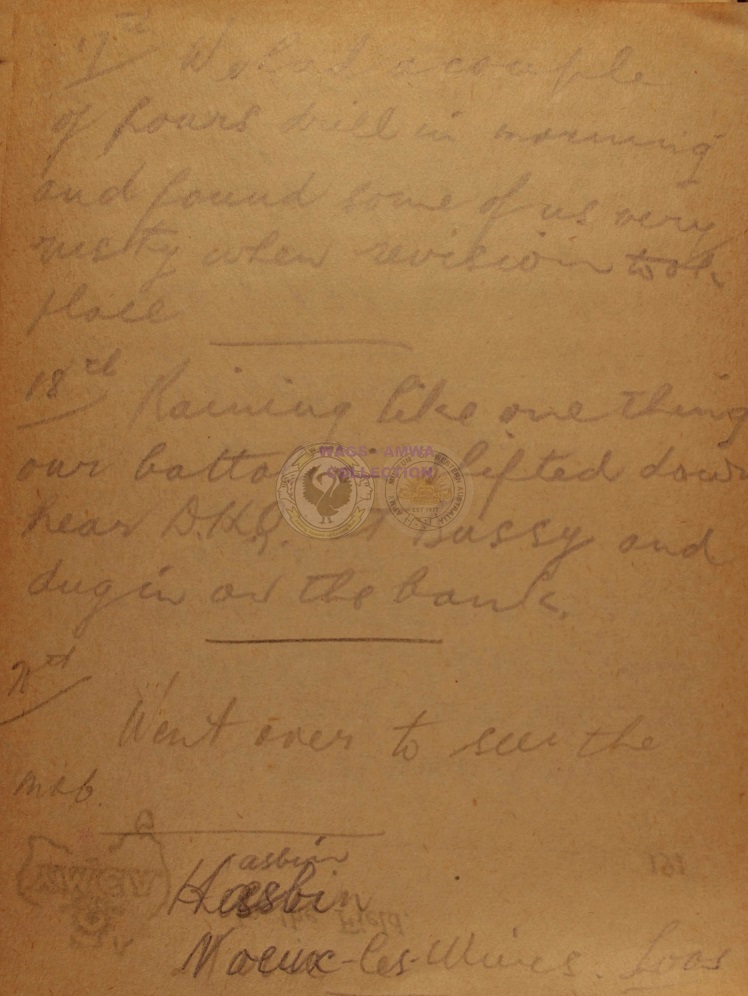 17th We had a couple
of hours drill in morning
and found some of us very
rusty when revision took
place
18th Raining like one thing
our batta lifted down
near D.H.Q. at Bussy and
dug in on the bank.
Went over to see the
mob.
asbin
Hasbin
Noeux-les-Mines. Loos
WAGS - AMWA
COLLECTION